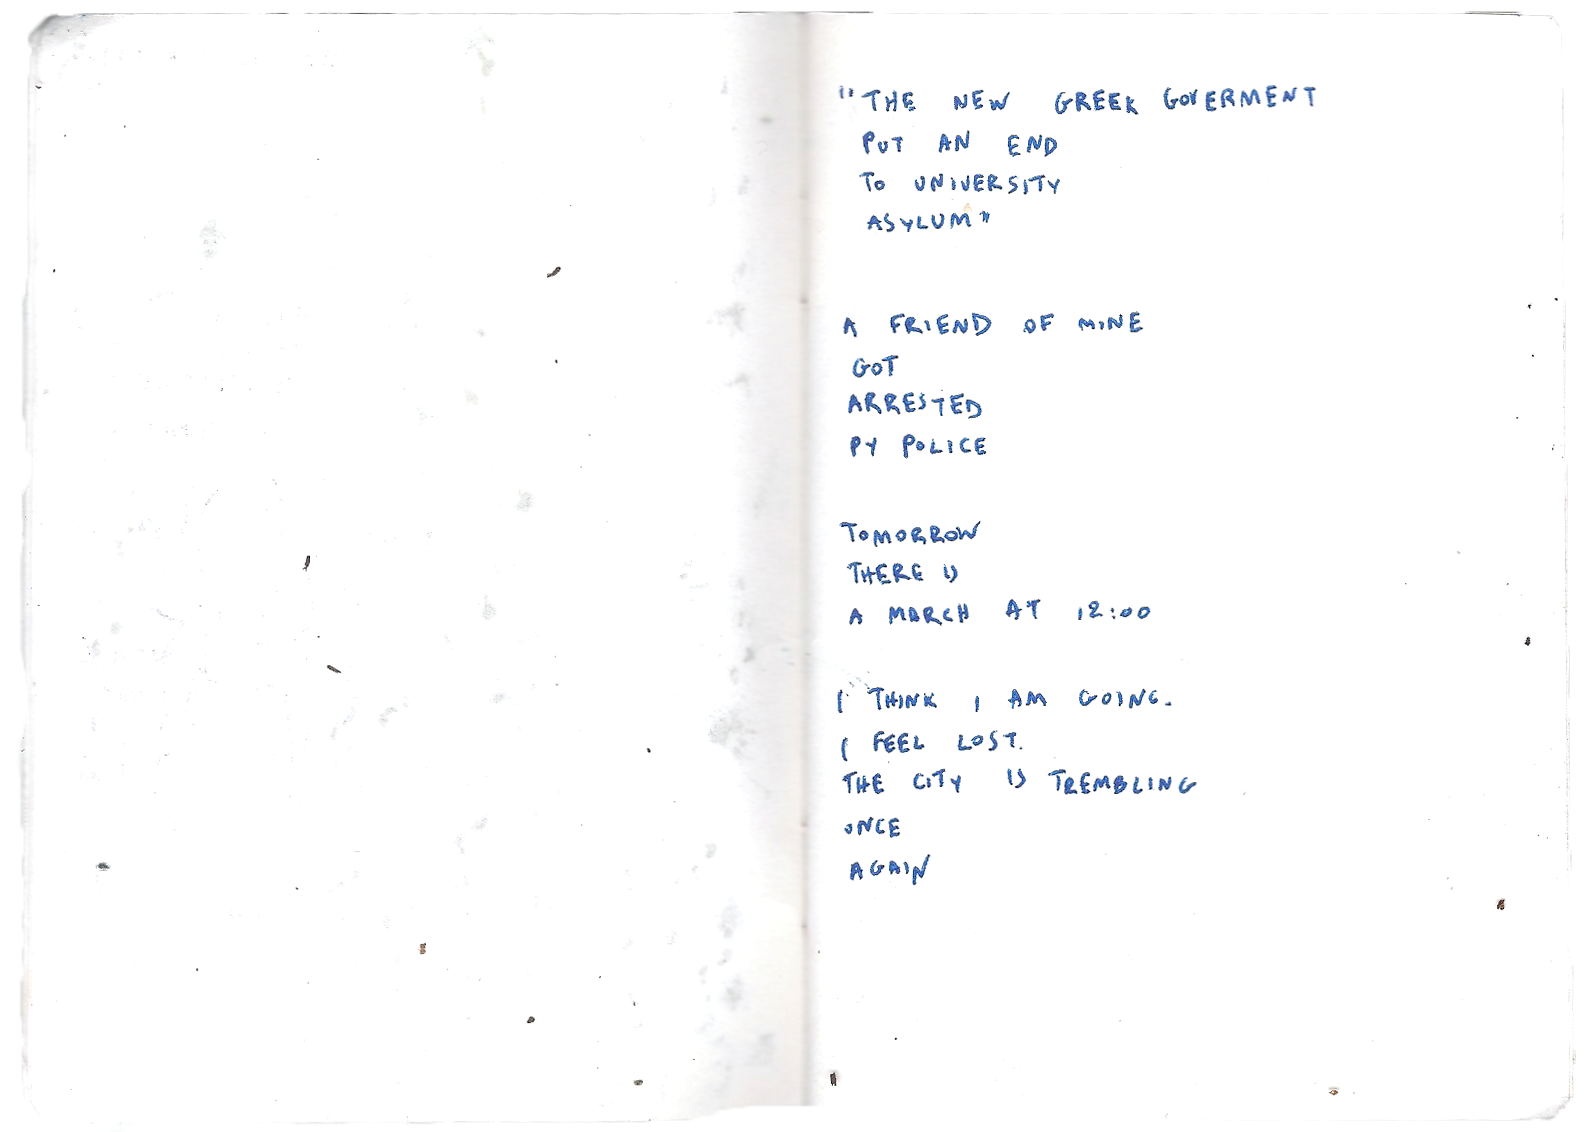 "THE NEW GREEK GOVERMENT
PUT AN END
TO UNIVERSITY
ASYLUM"
A FRIEND OF MINE
GOT
ARRESTED
PY POLICE
TOMORROW
THERE IS
A MARCH AT 12:00
I THINK I AM GOING.
I FEEL LOST.
THE CITY IS TREMBLING
ONCE
AGAIN